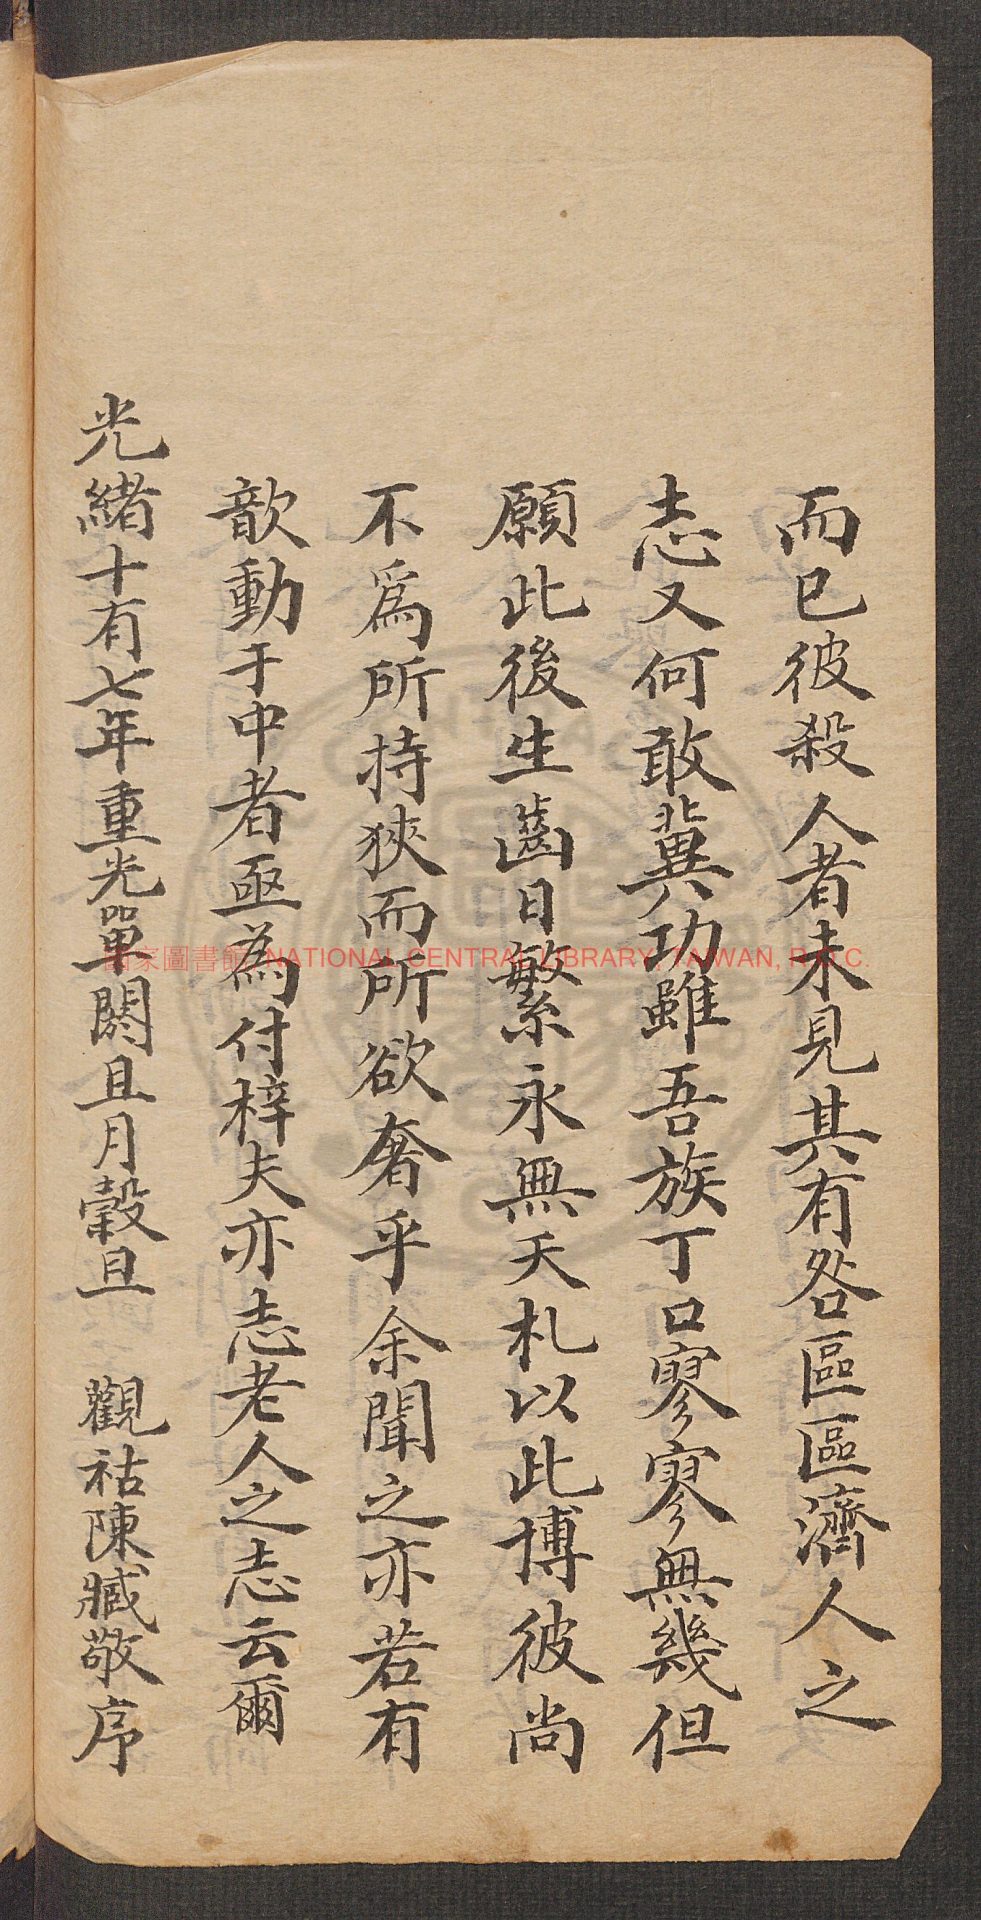 而已彼殺人者未見其有咎區區濟人之
志又何敢冀功雖吾族丁口寥寥無幾但
願此後生齒日繁永無夭札以此博彼尚
不爲所持狹而所欲奢乎余聞之亦若有
歆動于中者亟為付梓夫亦志老人之志云爾
光緒十有七年重光單閼且月穀旦 觀祜陳臧敬序
國家圖書館 NATIONAL CENTRAL LIBRARY, TAIWAN, R.O.C.